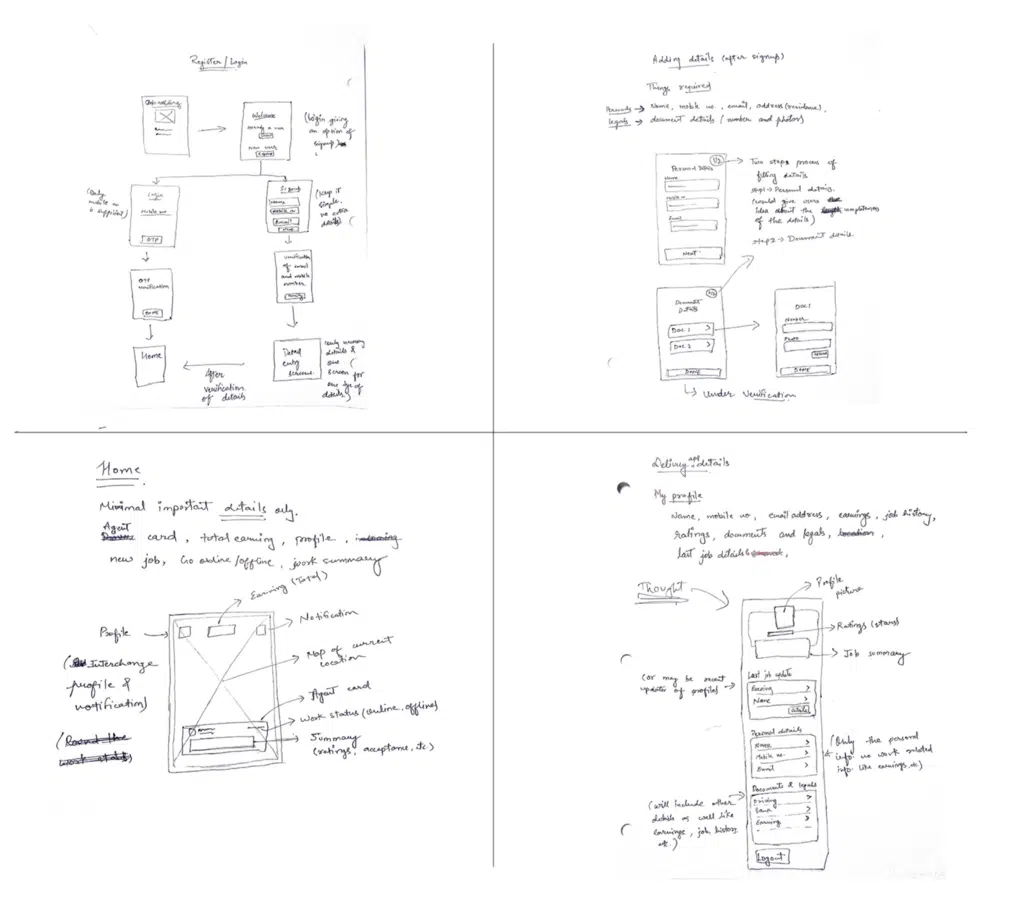 Register / Login
Onboarding
Welcome
Already a user
Login
New user
Signup
(Login giving
an option of
signup)
(Only
mobile no
is sufficient)
Login
Mobile no
OTP
Sign up
Name
Mobile no
Email
(Keep it
simple.
no extra
details)
OTP
verification
Verification
of email
and mobile
number
Home
After
verification
of details
Detail
entry
screens
details &
one
screen for
one type of
details.)
Adding details (after signup)
Things required
Personal → Name, mobile no., email, address (residence),
legals → document details (number and photos)
1/2
Personal Details
Name
Mobile no
Email
Next
Two steps process of
filling details
step1 → Personal details.
(would give user the
idea about the completeness
of the details)
step2 → Document details
2/2
Document
Details
Doc 1 >
Doc 2 >
Done
Doc 1
Number
Photo
Upload
Done
↳ Under verification
Home
Minimal important details only.
Agent
card, total earning, profile, incoming
new job, Go online/offline, work summary
Earning (Total)
Profile
Notification
(Interchange
profile &
notification)
Map of current
location
Agent card
Work status (online, offline)
Summary
(ratings, acceptance, etc)
(Round the
work status)
Delivery app details
My profile
Name, mobile no, email address, earnings, job history,
ratings, documents and legals, location,
last job details
Thought
Profile
picture
Ratings (stars)
Job summary
(or may be recent
updates of profile)
Last job update
Earning >
Name >
Details
Personal details
Name >
Mobile no. >
Email >
(Only the personal
info no work related
info like earnings, etc)
Documents & legals
Driving >
Bank >
Earning >
(Will include other
details as well like
earnings, job history
etc.)
Logout